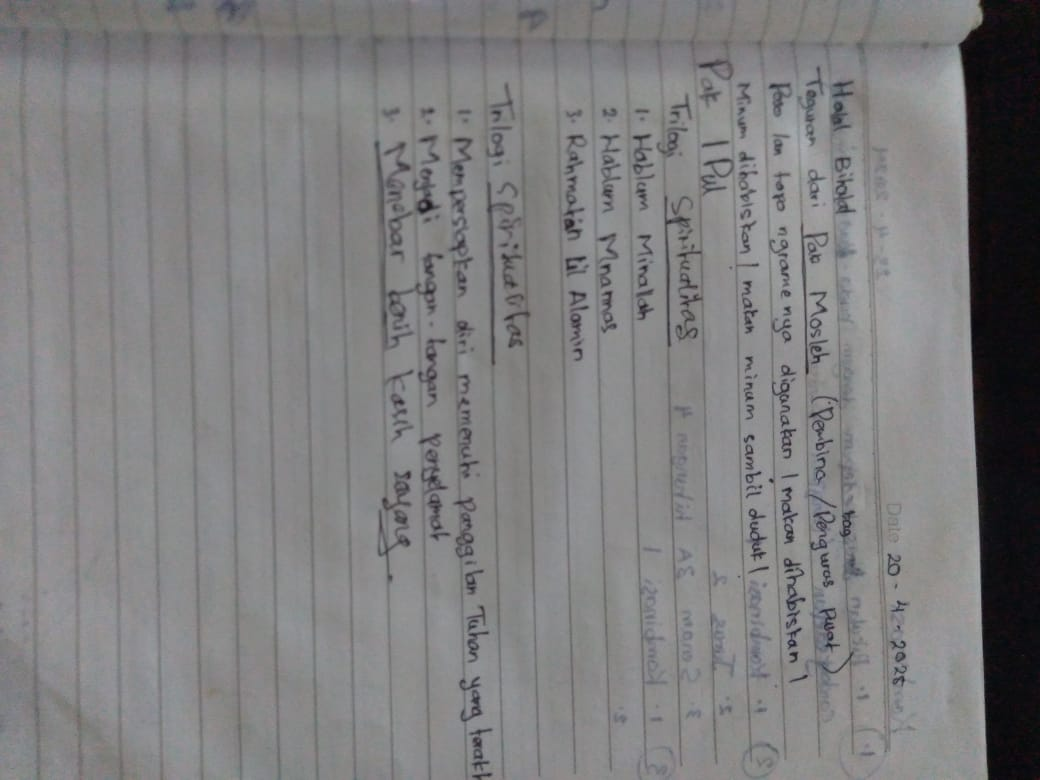 Date 20-4-2025
Halal Bihalal
Teguran dari Pak Mosleh (Pembina/Pengurus Pusat)
Poso lan topo ngrame nya digunakan / makan dihabiskan /
Minum dihabiskan / makan minum sambil duduk /
Pak IPul
Trilogi Spiritualitas
1. Hablum Minalah
2. Hablum Mnannas
3. Rahmatan lil Alamin
Trilogi Spiritualitas
1. Mempersiapkan diri memenuhi panggilan Tuhan yang terakh
2. Menjadi tangan-tangan penyelamat
3. Menebar benih kasih sayang.